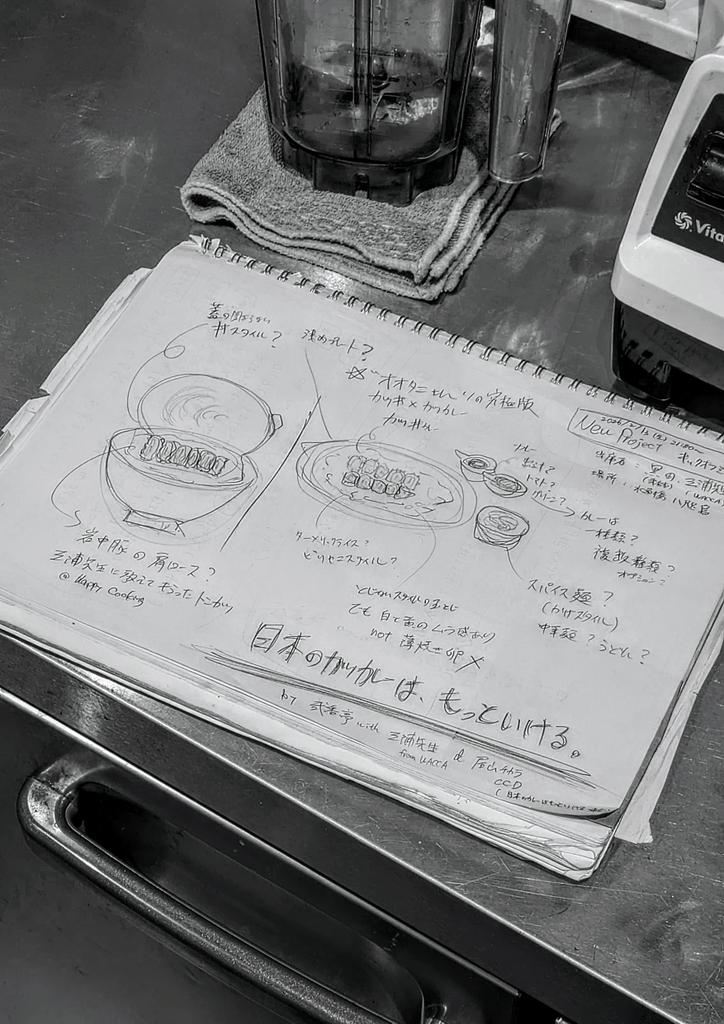 蓋の閉まらない
丼スタイル?
浅めプレート?
☆"オオタニさん"リの究極版
カツ丼×カツカレー
カツ丼ル
New Project キックオフ
出席者:
場所:
カレー
トマト?
グリーン?
カレーは
一種類?
複数種類?
オプション?
岩中豚の肩ロース?
三浦先生に教えてもらったトンカツ
@ Happy Cooking
ターメリックライス?
どりやきスタイル?
とじないスタイルの玉とじ
でも白と黄のムラ感あり
not 薄焼き卵 ×
スパイス麺?
(かけスタイル)
中華麺?うどん?
日本のカツカレーは、もっといける。
by with 三浦先生 &
from WACCA
CCD
Vita